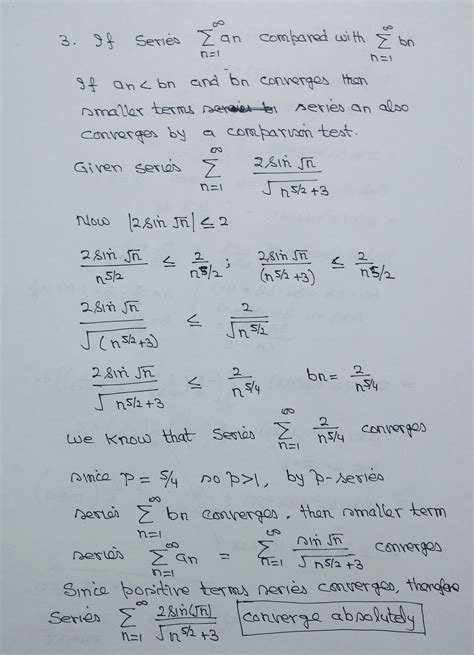 3. If Series ∞ Σ n=1 an compared with ∞ Σ n=1 bn
If an < bn and bn converges then
smaller terms series an also
converges by a comparison test.
Given series ∞ Σ n=1 2 sin √n / √(n^5/2 + 3)
Now |2 sin √n| ≤ 2
2 sin √n / n^5/2 ≤ 2 / n^5/2 ; 2 sin √n / (n^5/2 + 3) ≤ 2 / n^5/2
2 sin √n / √(n^5/2 + 3) ≤ 2 / √n^5/2
2 sin √n / √n^5/2 + 3 ≤ 2 / n^5/4 bn = 2 / n^5/4
We know that Series ∞ Σ n=1 2 / n^5/4 converges
since P = 5/4 so P>1, by p-series
series ∞ Σ n=1 bn converges. then smaller term
series ∞ Σ n=1 an = ∞ Σ n=1 sin √n / √n^5/2 + 3 converges
Since positive terms series converges, therefore
Series ∞ Σ n=1 2 sin(√n) / √n^5/2 + 3 converge absolutely